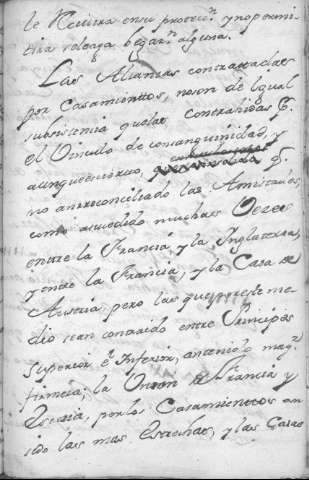 le Reciviera en su proteccⁿ. y no permi-
tira se le haga
Las Alianzas contractadas
por Casamientos, no son de Igual
subsistencia que las contrahidas pʳ.
el Vinculo de consanguinidad, y
aunque
no an reconciliado las Amistades,
como a sucedido muchas Vezes
entre la Francia, y la Inglaterra,
y entre la Francia, y la Casa de
Austria, pero las que por este me-
dio se an contraido entre Principes
Superior è Inferior, an tenido mayʳ.
firmeza; la Union de Francia y
Escocia, por los Casamientos an
sido las mas Estrechas, y las Casas